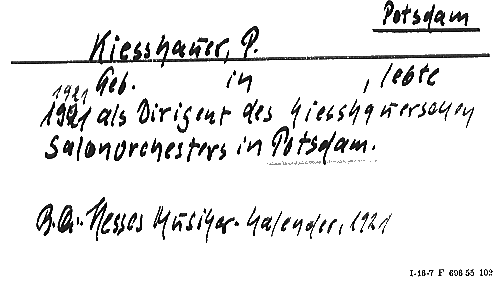 Potsdam
Kiesshauer, P.
Geb. in , lebte
1921
1921 als Dirigent des Kiesshauerschen
Salonorchesters in Potsdam.
Hesses Musiker-Kalender, 1921
I-16-7 F 696 55 102